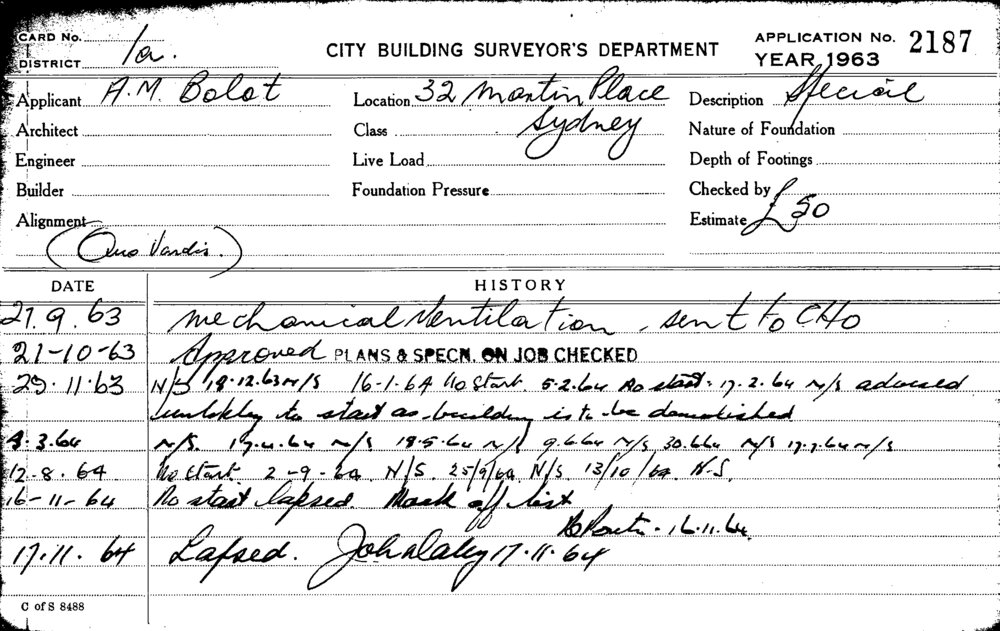 CARD No.
DISTRICT 1a.
CITY BUILDING SURVEYOR'S DEPARTMENT
APPLICATION No. 2187
YEAR 1963
Applicant A.M. Bolot
Location 32 Martin Place
Sydney
Description Special
Architect
Class
Nature of Foundation
Engineer
Live Load
Depth of Footings
Builder
Foundation Pressure
Checked by
Alignment
Estimate £50
(Quo Vardis.)
DATE HISTORY
27.9.63 Mechanical Ventilation, sent to CHO
21-10-63 Approved PLANS & SPECN. ON JOB CHECKED
29.11.63 N/S 18.12.63 N/S 16-1-64 No Start. 5.2.64 No start. 17.2.64 N/S advised
unlikley to start as building is to be demolished
3.64 N/S. 17.4.64 N/S 18.5.64 N/S 9.6.64 N/S 30.6.64 N/S 17.7.64 N/S
12-8.64 No Start 2-9-64. N/S. 25/9/64. N/S. 13/10/64. N.S.
16-11-64 No start lapsed. Mark off list
16.11.64
17.11.64 Lapsed. 17.11.64
C of S 8488